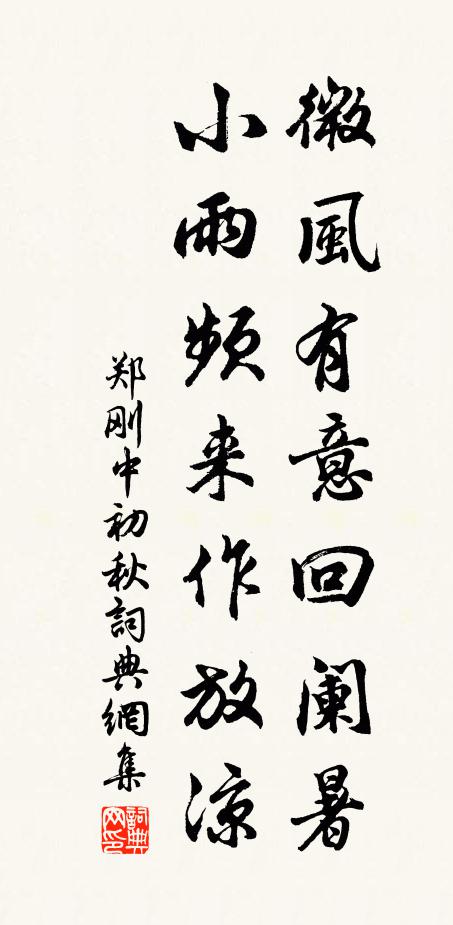 微風有意回阑暑
小雨频来作放凉
郑刚中初秋詞典網集
詞典网印